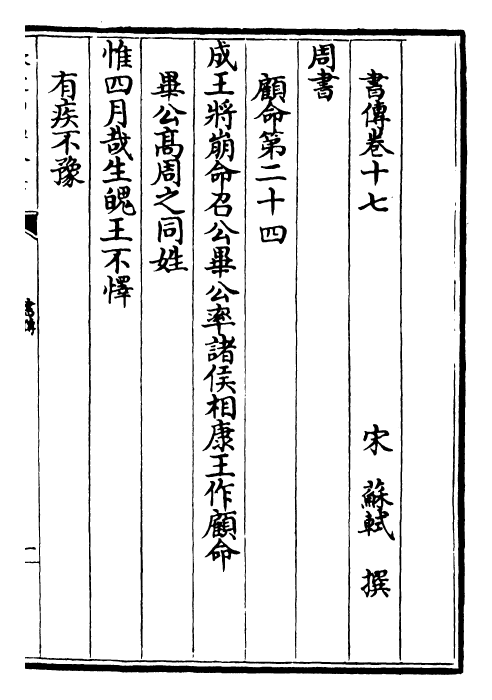 書傳卷十七
宋 蘇軾 撰
周書
顧命第二十四
成王將崩命召公畢公率諸侯相康王作顧命
畢公髙周之同姓
惟四月哉生魄王不懌
有疾不豫
書傳
一